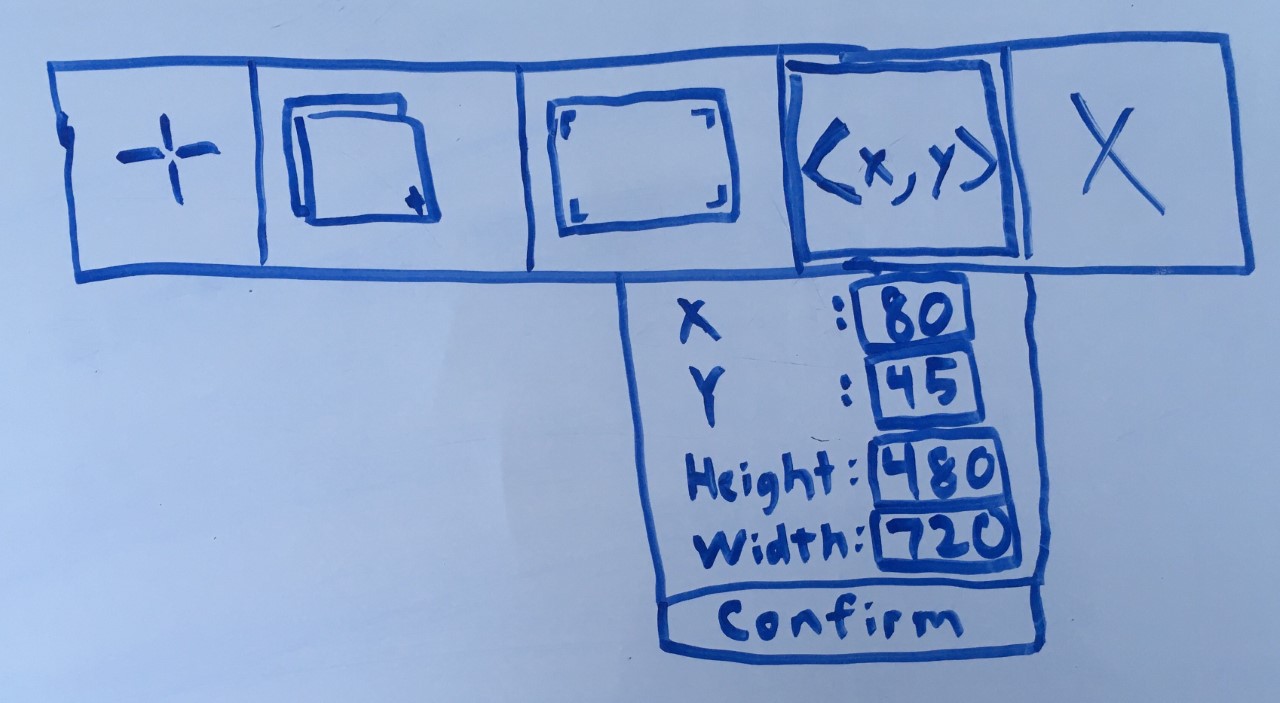 <x,y> X
X : 80
Y : 45
Height: 480
Width: 720
Confirm